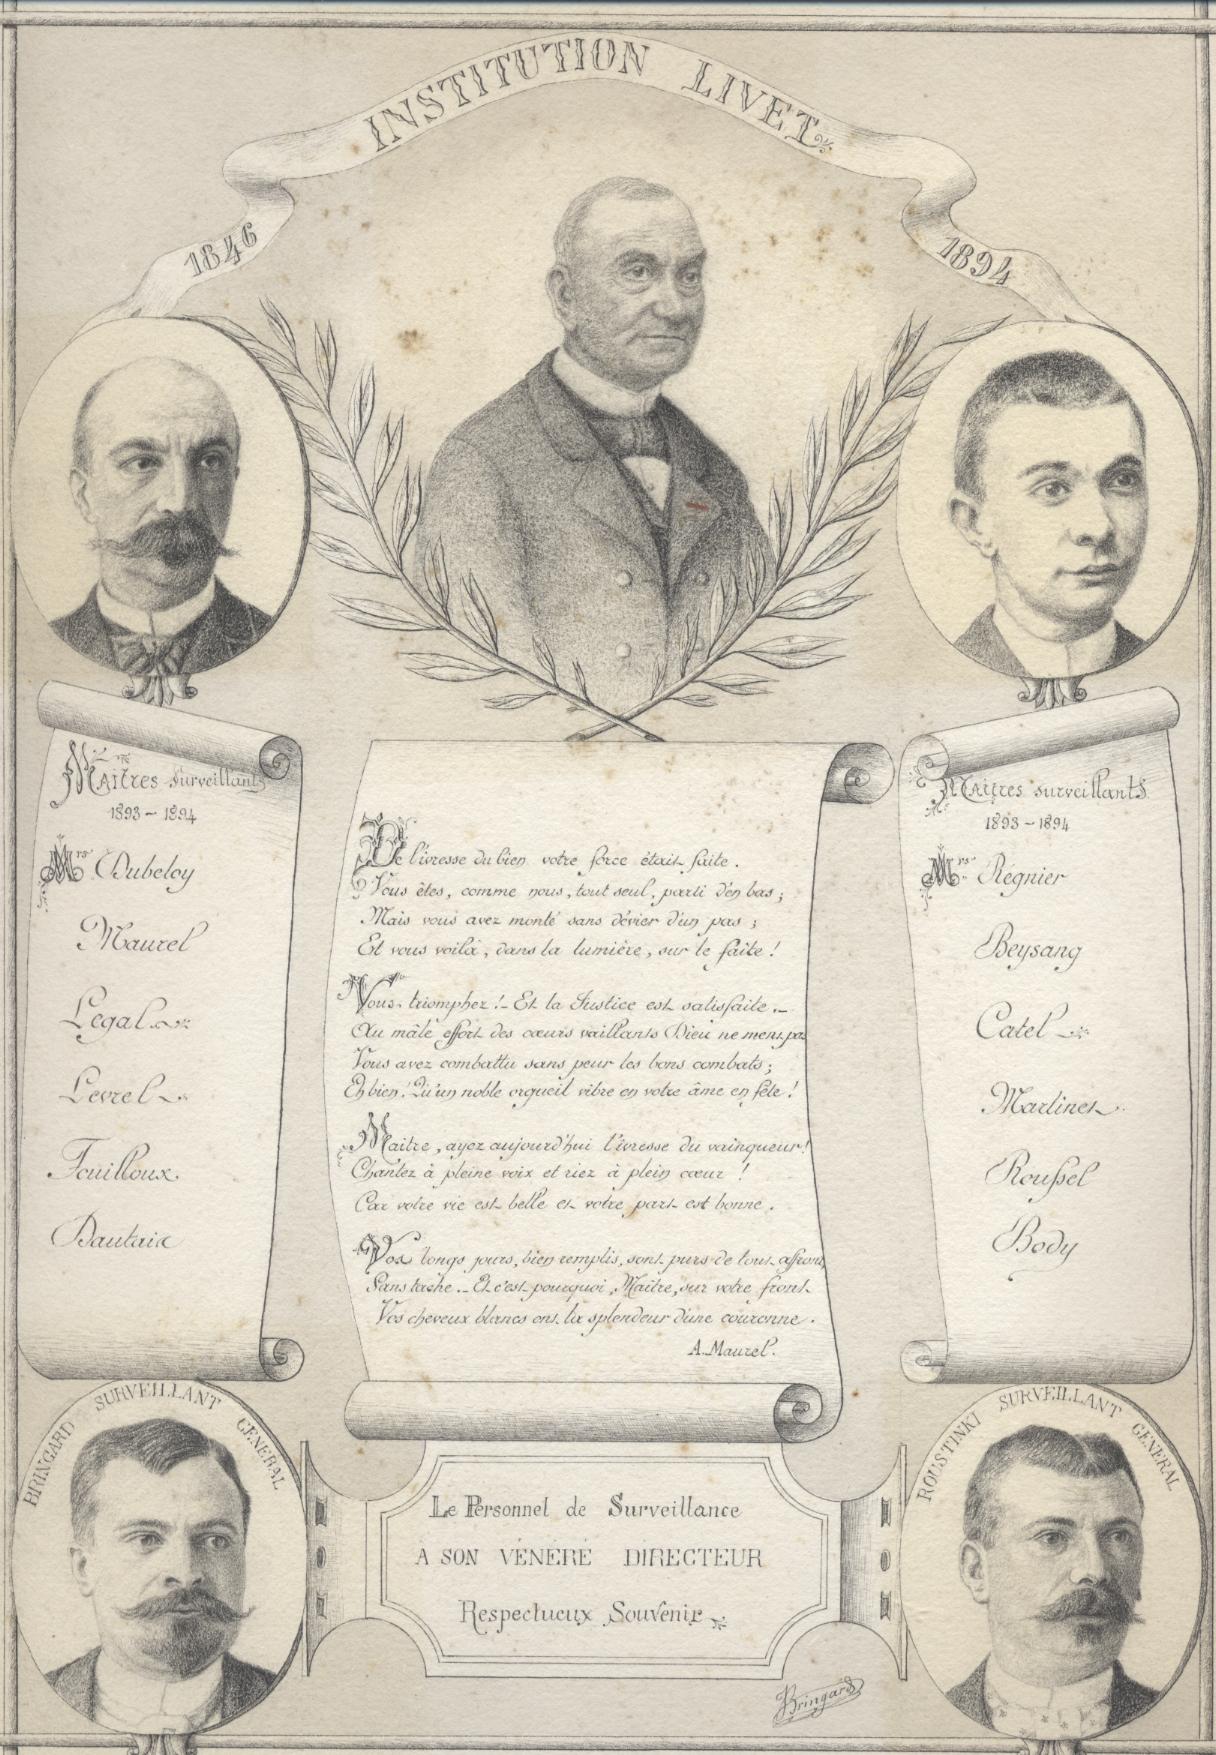 INSTITUTION LIVET
1846
1894
Maitres surveillants
1893 - 1894
Mrs Dubeloy
Maurel
Legal
Levrel
Fouilloux
Bautais
De l'ivresse du bien votre force était faite.
Vous êtes, comme nous, tout seul, parti d'en bas ;
Mais vous avez monté sans dévier d'un pas ;
Et vous voilà, dans la lumière, sur le faite !
Vous triomphez ! - Et la Justice est satisfaite. -
Au mâle effort des cœurs vaillants Dieu ne ment pas
Vous avez combattu sans peur les bons combats ;
Eh bien ! Qu'un noble orgueil vibre en votre âme en fête !
Maitre, ayez aujourd'hui l'ivresse du vainqueur !
Chantez à pleine voix et riez à plein cœur !
Car votre vie est belle et votre part est bonne.
Vos longs jours, bien remplis, sont purs de tout affront
Sans tache. - Et c'est pourquoi, Maitre, sur votre front
Vos cheveux blancs ont la splendeur d'une couronne.
A. Maurel.
Maitres surveillants
1893 - 1894
Mrs Régnier
Beysang
Catel
Martinet
Roussel
Body
BRINGARD SURVEILLANT GENERAL
Le Personnel de Surveillance
À SON VÉNÉRÉ DIRECTEUR
Respectueux Souvenir
ROUSTINKI SURVEILLANT GENERAL
Bringard